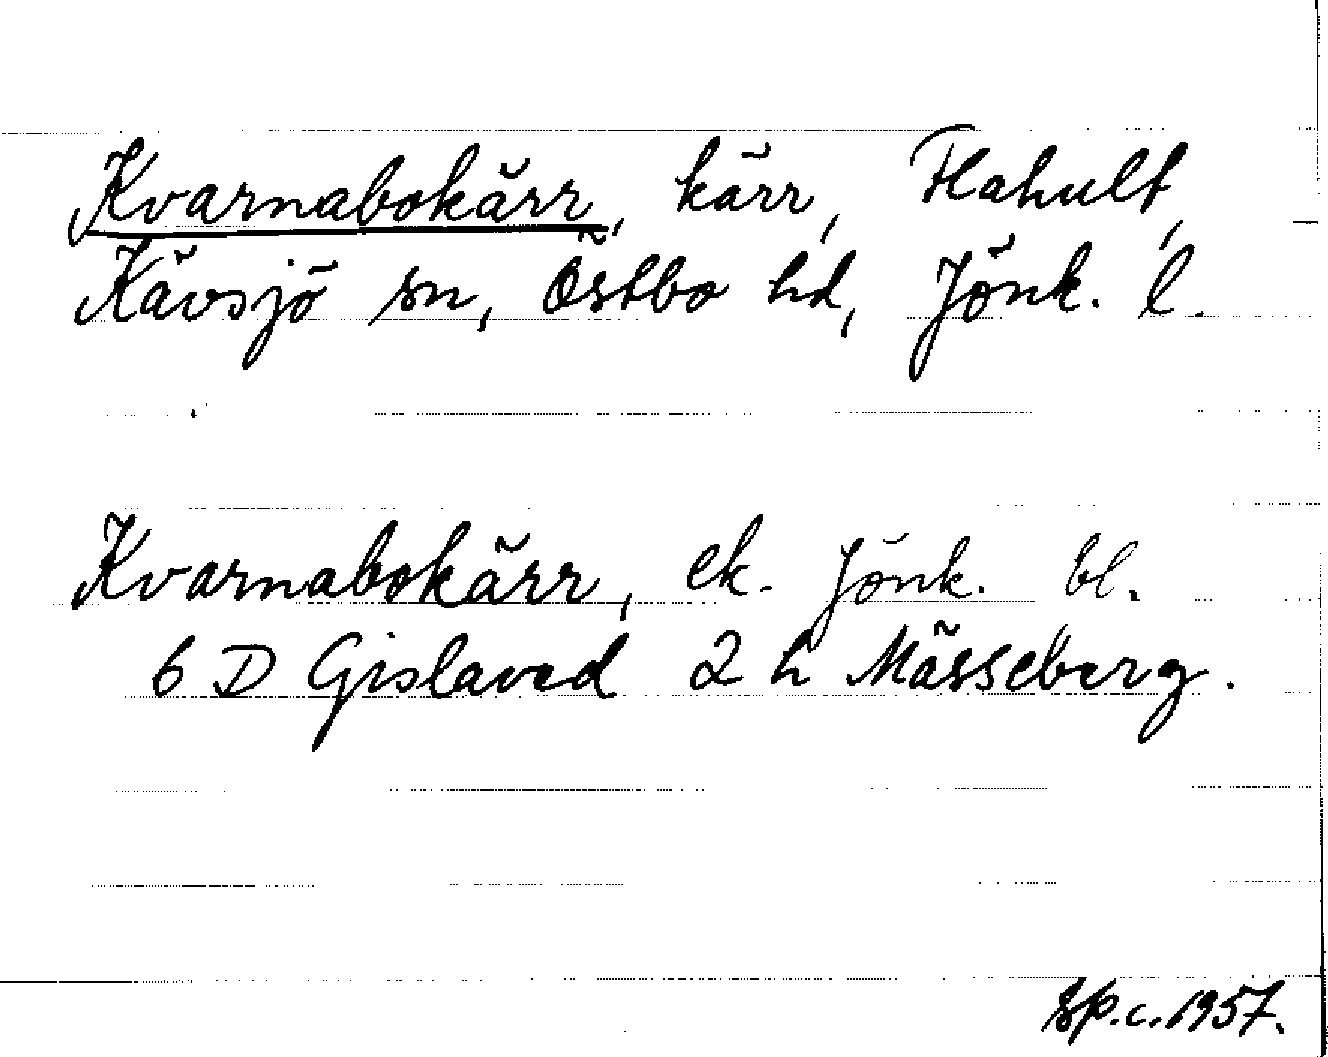 Kvarnabokärr, kärr, Flahult,
Kävsjö sn, Östbo hd, Jönk. l.
Kvarnabokärr, ek. Jönk. bl.
6 D Gislaved 2 h Mässeberg.
sp.c. 1957.